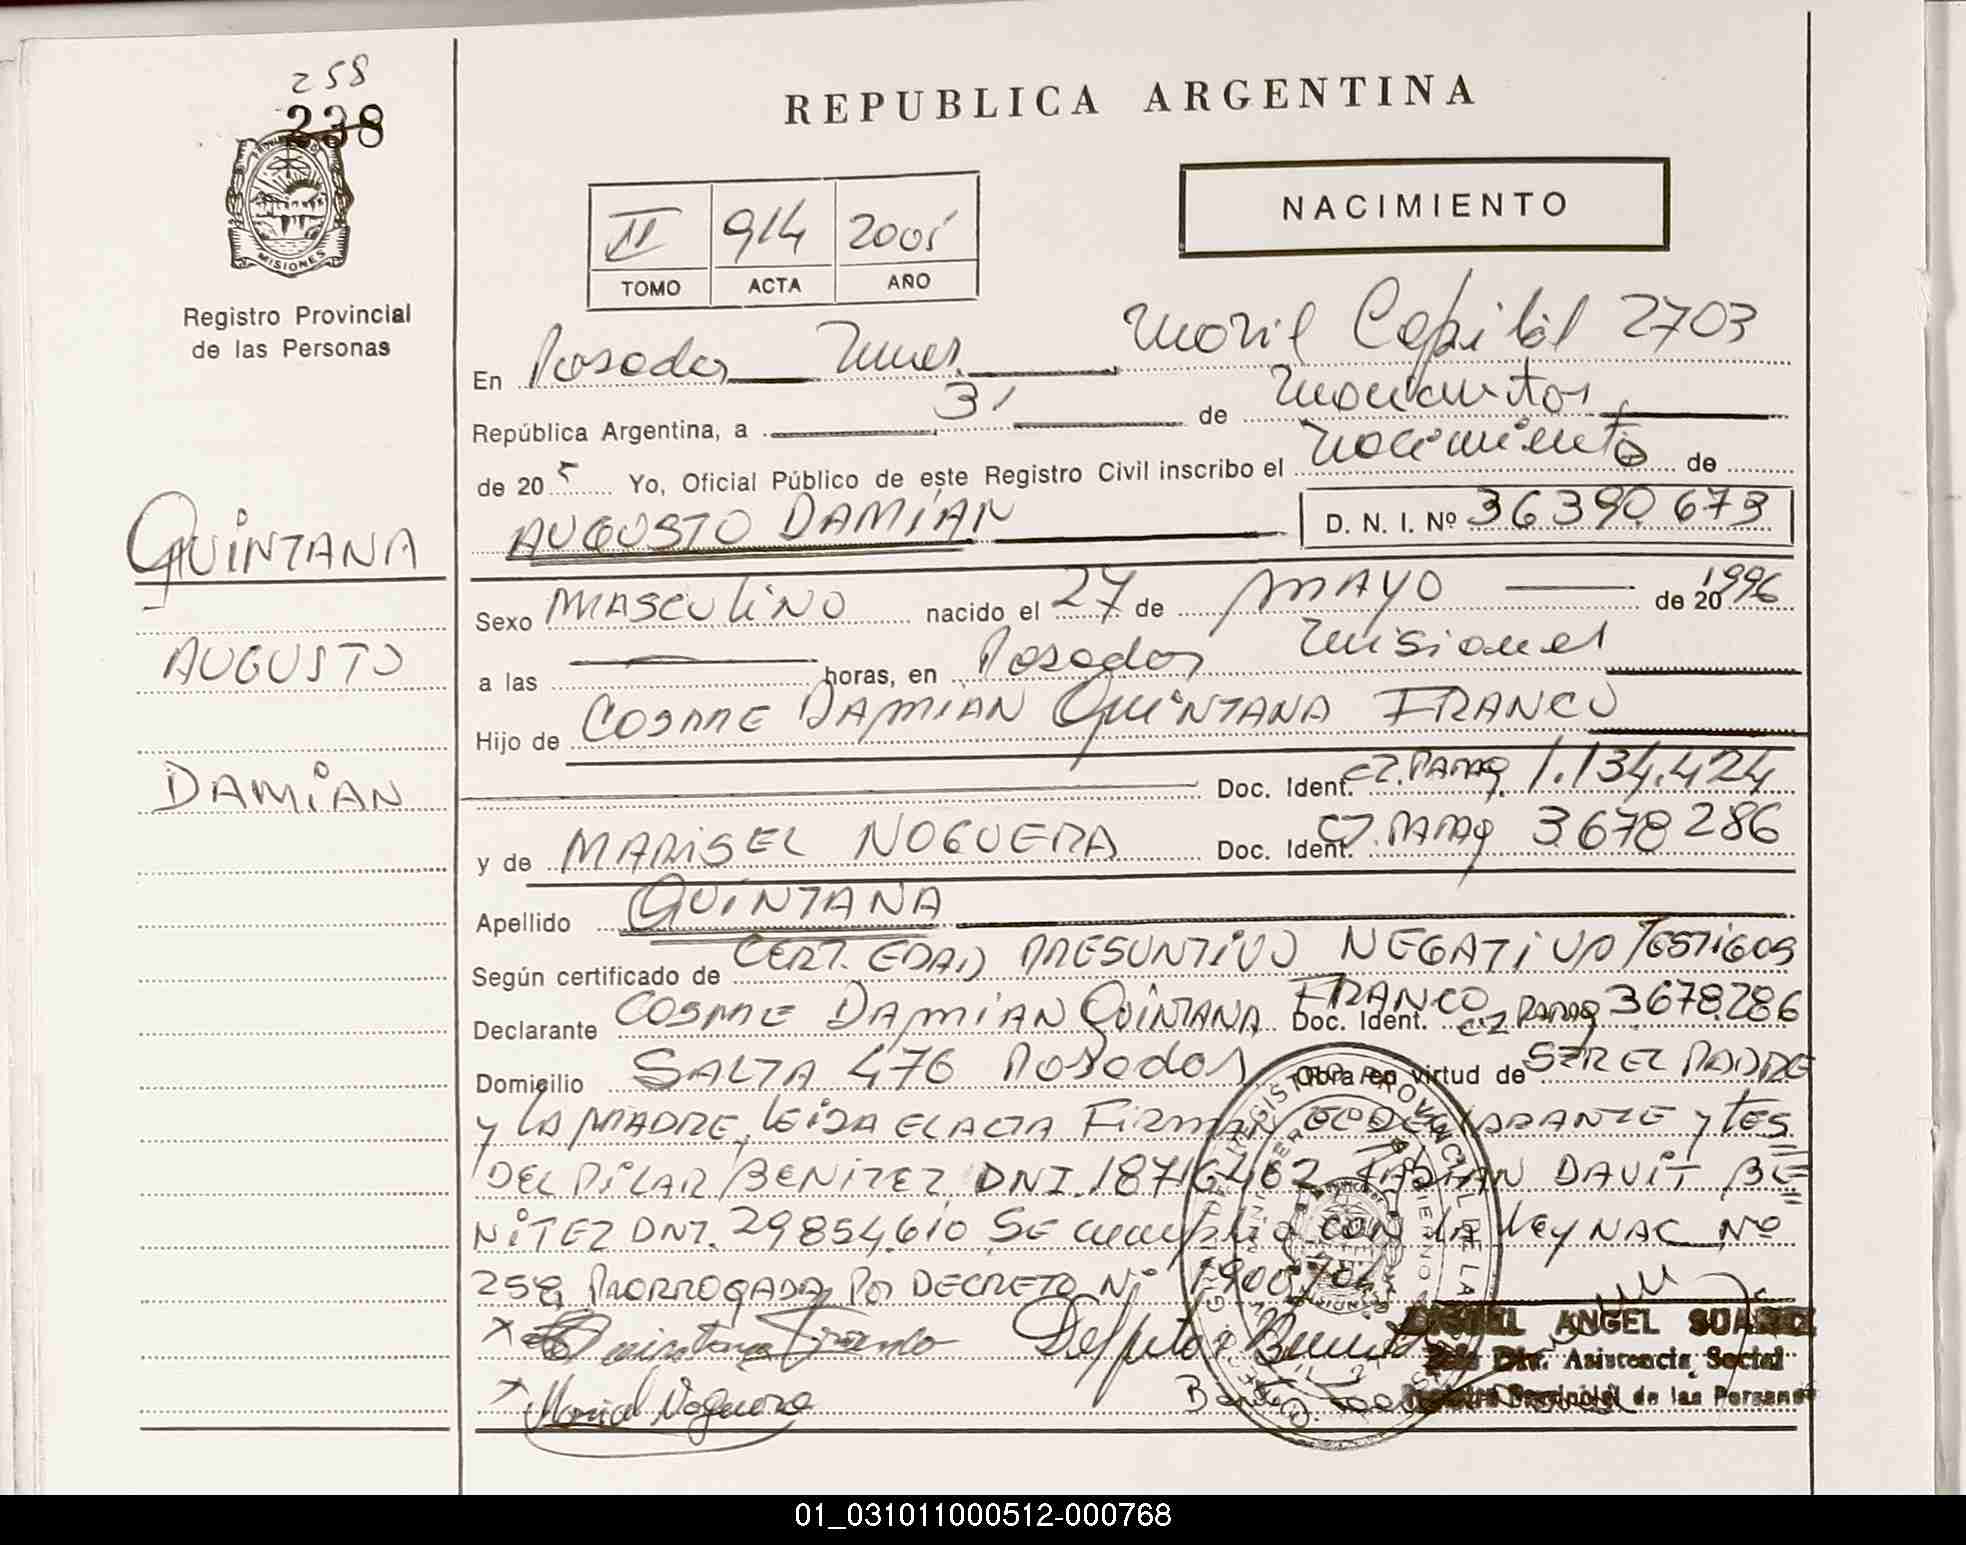 258
238
MISIONES
Registro Provincial
de las Personas
QUINTANA
AUGUSTO
DAMIAN
REPUBLICA ARGENTINA
NACIMIENTO
II 914 2005
TOMO ACTA AÑO
En Posadas Mnes. Movil Capital 2703
República Argentina, a 31 de
de 20 5 Yo, Oficial Público de este Registro Civil inscribo el nacimiento de
AUGUSTO DAMIAN D. N. I. Nº 36390.673
Sexo MASCULINO nacido el 27 de MAYO de 20 1996
a las horas, en Posadas Misiones
Hijo de COSME DAMIAN QUINTANA FRANCO
Doc. Ident. CZ. PARAG. 1.134.424
y de MARISEL NOGUERA Doc. Ident. CZ. PARAG 3678286
Apellido QUINTANA
Según certificado de CERT. EDAD PRESUNTIVO NEGATIVO TESTIGOS
Declarante COSME DAMIAN QUINTANA FRANCO Doc. Ident. CZ PARAG 3678.286
Domicilio SALTA 476 Posadas Obra en virtud de SER EL PADRE
y LA MADRE, LEIDA EL ACTA FIRMAN EL DECLARANTE y TES
DEL PILAR BENITEZ DNI. 18716462 FABIAN DAVIT BE
NITEZ DNI. 29854.610 SE cumplio CON LA LEY NAC Nº
259 PRORROGADA POR DECRETO Nº 1900/04
X Quintana Franco
ANGEL SUAREZ
Div. Asistencia Social
Registro Provincial de las Personas
X Marisel Noguera
01_031011000512-000768